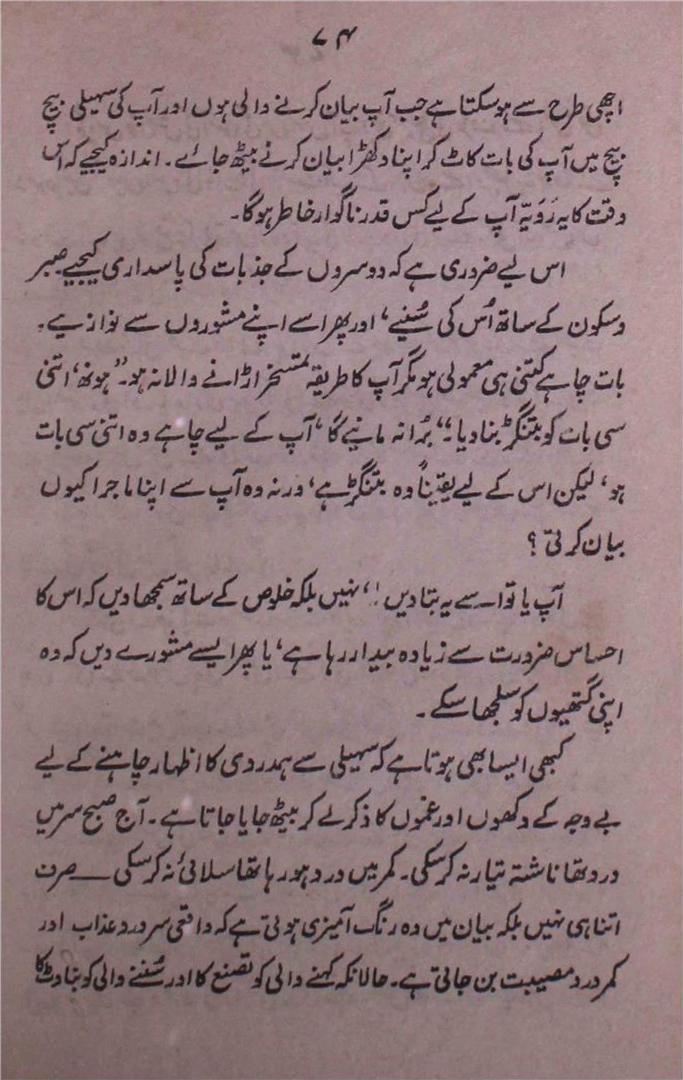 ۷۴
اچھی طرح سے ہوسکتا ہے جب آپ بیان کرنے والی ہوں اور آپ کی سہیلی بیچ
بیچ میں آپ کی بات کاٹ کر اپنا دکھڑا بیان کرنے بیٹھ جائے۔ اندازہ کیجیے کہ اس
وقت کا یہ رَوَیّہ آپ کے لیے کس قدر ناگوار خاطر ہوگا۔
اس لیے ضروری ہے کہ دوسروں کے جذبات کی پاسداری کیجیے صبر
و سکون کے ساتھ اُس کی سُنیے، اور پھر اسے اپنے مشوروں سے نوازیے۔
بات چاہے کتنی ہی معمولی ہو مگر آپ کا طریقہ تمسخر اڑانے والا نہ ہو۔ ”ہونھ، اتنی
سی بات کو بتنگڑ بنا دیا۔“ بُرا نہ مانیے گا، آپ کے لیے چاہے وہ اتنی سی بات
ہو، لیکن اس کے لیے یقیناً وہ بتنگڑ ہے، ورنہ وہ آپ سے اپنا ماجرا کیوں
بیان کرتی؟
آپ یا تو اسے یہ بتا دیں !، نہیں بلکہ خلوص کے ساتھ سمجھا دیں کہ اس کا
احساس ضرورت سے زیادہ بیدار رہا ہے، یا پھر ایسے مشورے دیں کہ وہ
اپنی گتھیوں کو سلجھا سکے۔
کبھی ایسا بھی ہوتا ہے کہ سہیلی سے ہمدردی کا اظہار چاہنے کے لیے
بے وجہ کے دکھوں اور غموں کا ذکر لے کر بیٹھ جایا جاتا ہے۔ آج صبح سر میں
درد تھا ناشتہ تیار نہ کرسکی۔ کمر میں درد ہو رہا تھا سلائی نہ کرسکی — صرف
اتنا ہی نہیں بلکہ بیان میں وہ رنگ آمیزی ہوتی ہے کہ واقعی سر درد عذاب اور
کمر درد مصیبت بن جاتی ہے۔ حالانکہ کہنے والی کو تصنع کا اور سُننے والی کو بناوٹ کا